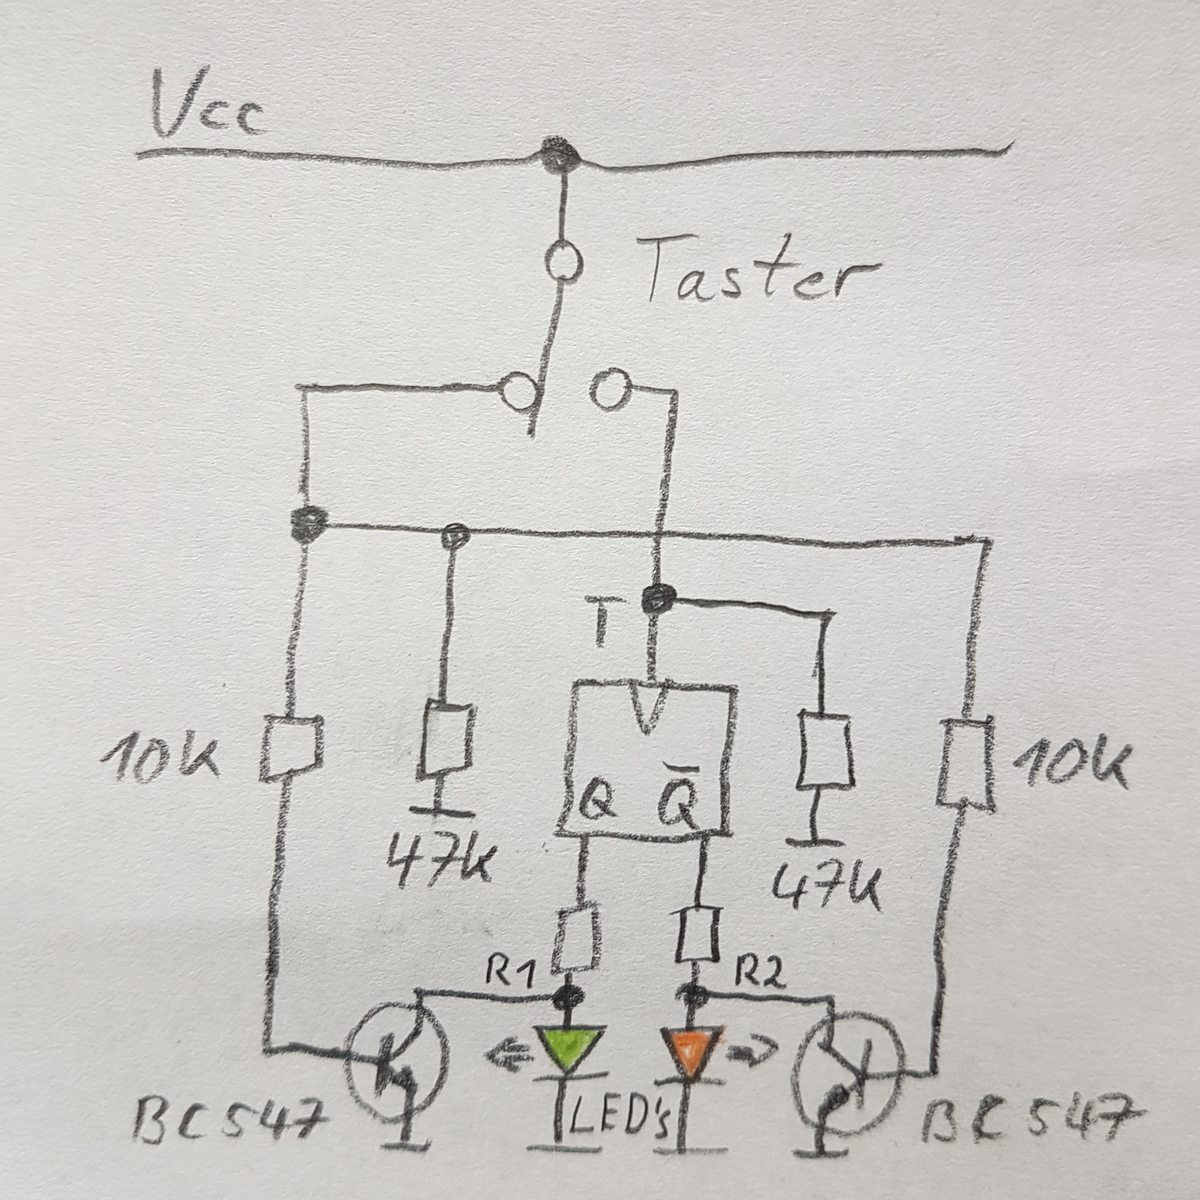 Vcc
Taster
T
10k
10k
Q Q̅
47k
47k
R1
R2
LED's
BC547
BC547